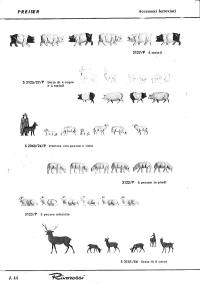 PREISER
Accessori ferroviari
2127/P 6 maiali
S 2125/27/P Serie di 4 capre
e 4 maiali
S 2060/24/P Pastore con pecore e cane
2122/P 6 pecore in piedi
2123/P 6 pecore sdraiate
S 2121/24 Serie di 6 cervi
J. 44
Rivarossi